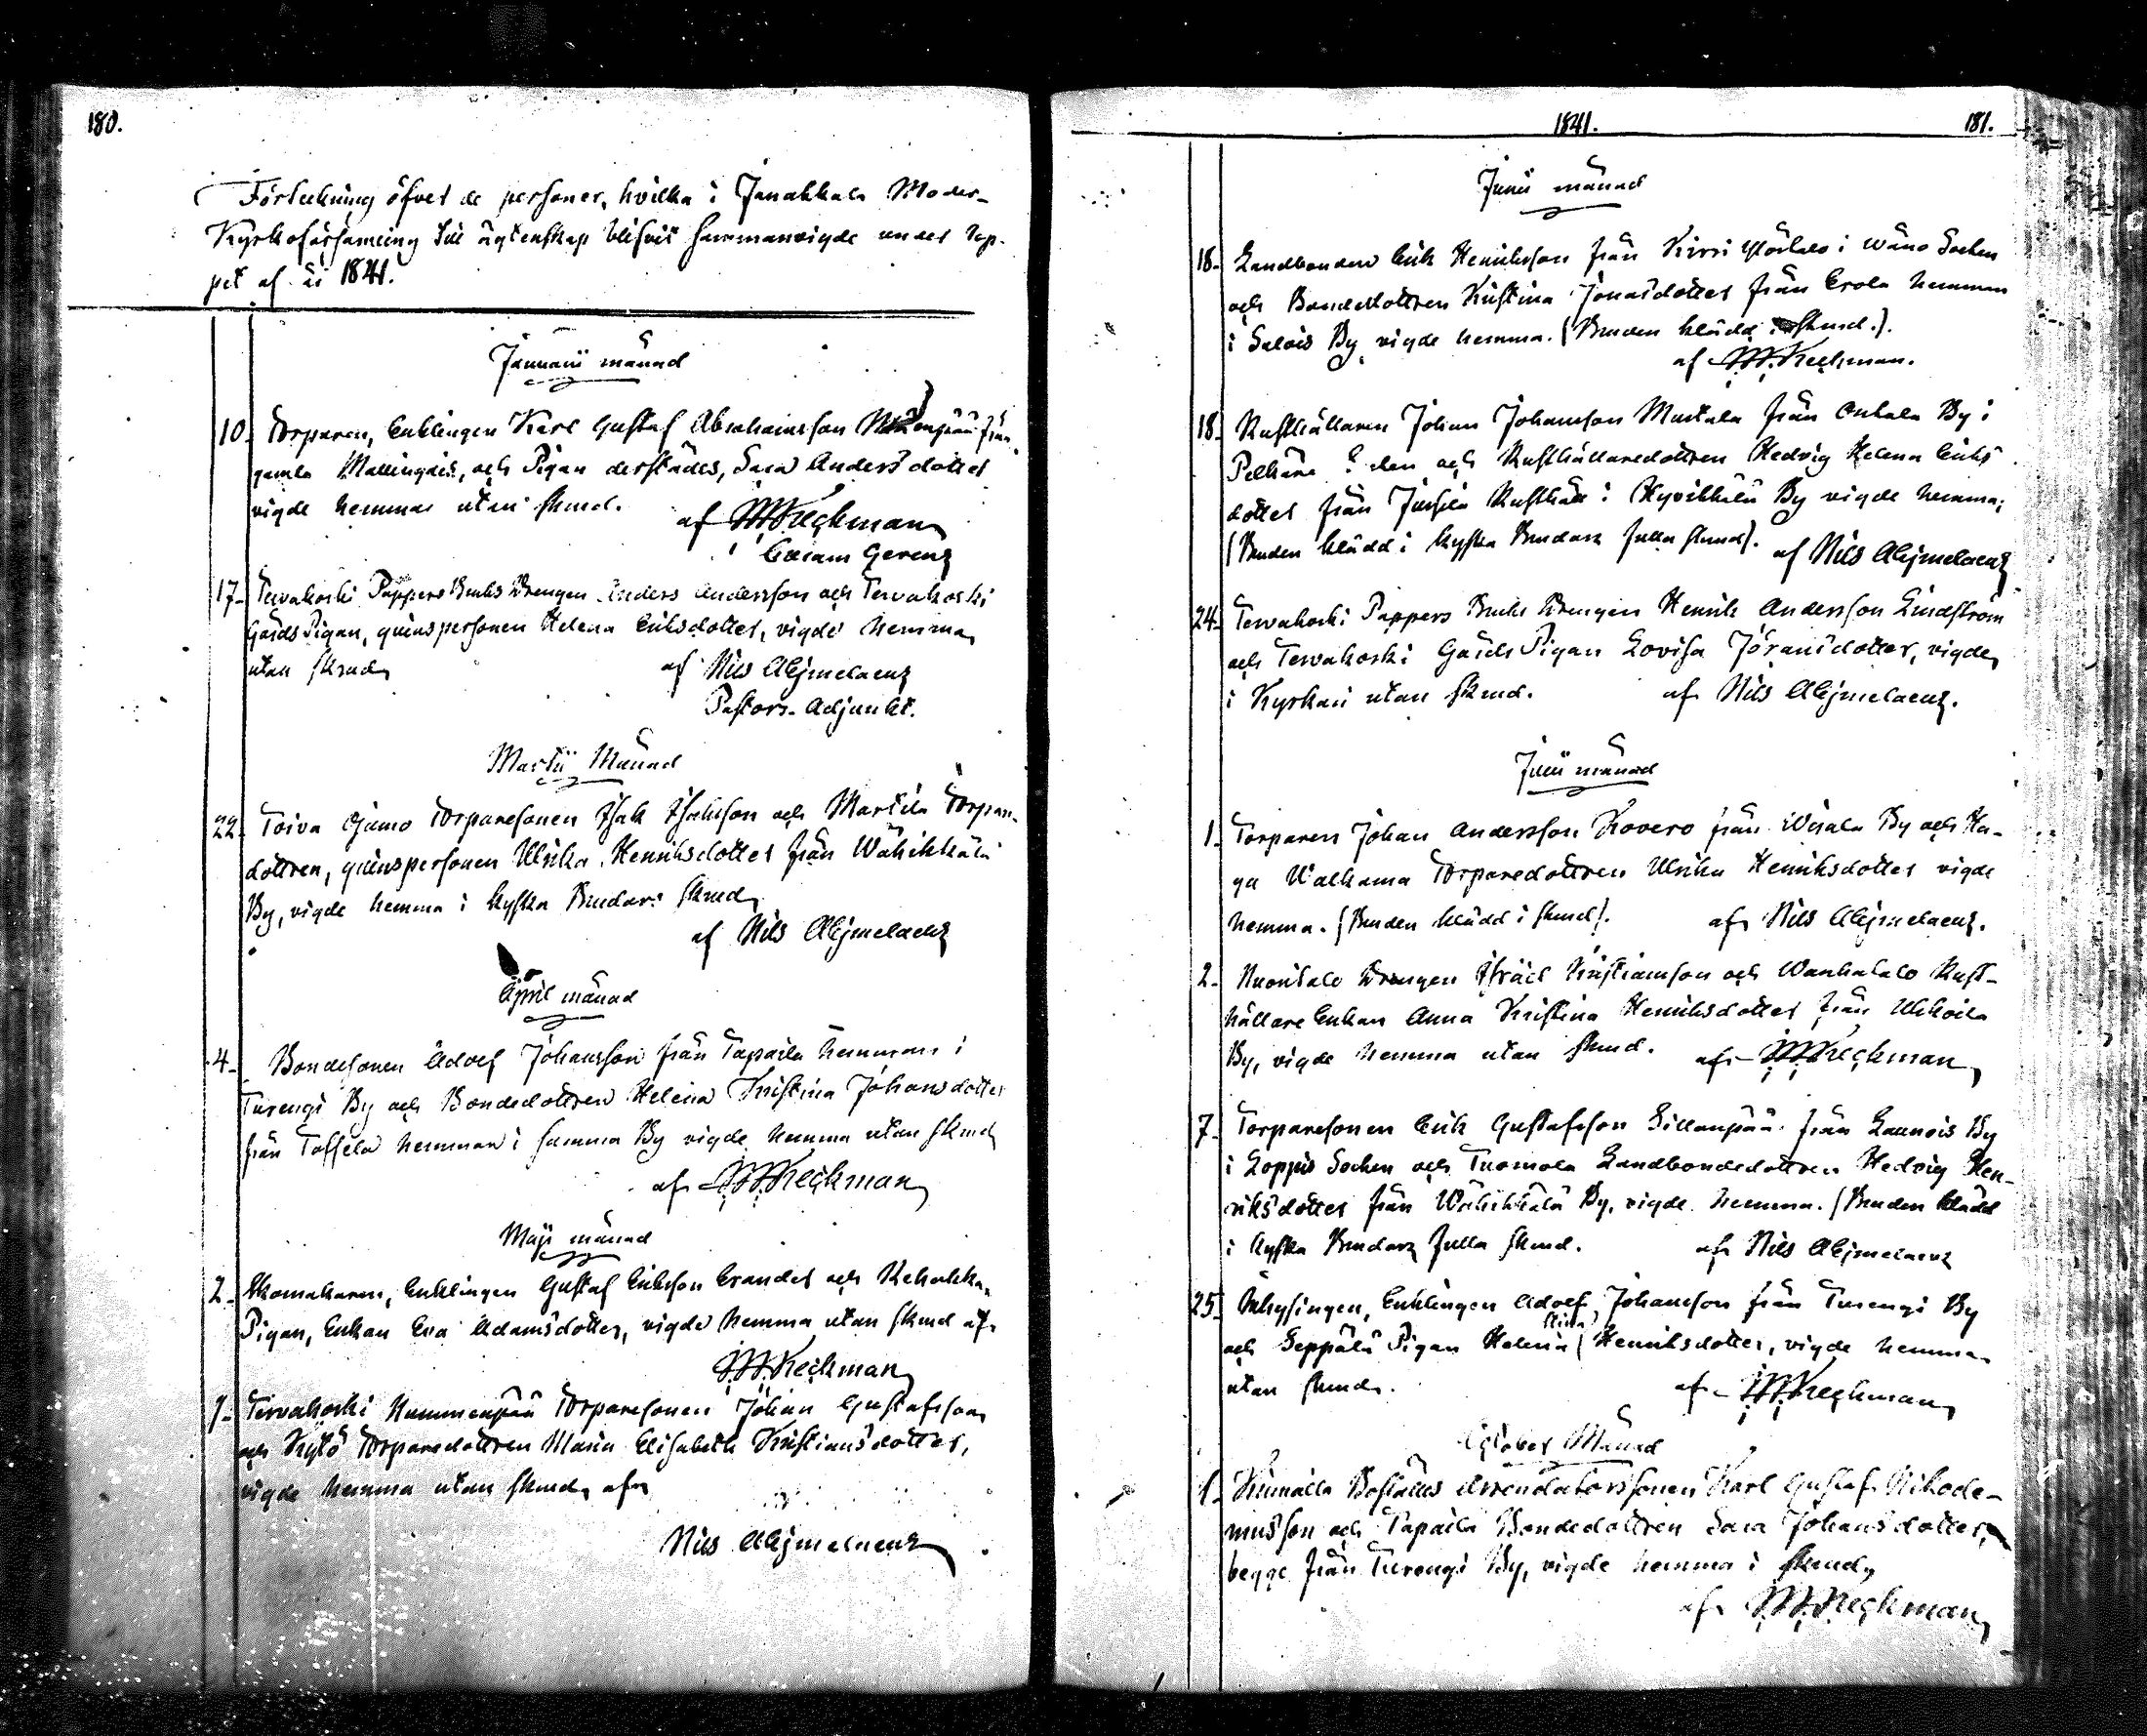 180.
Förteckning öfver de personer, hvilka i Janakkala Moder-
Kyrkoförsamling till ägtenskap blifvit sammanvigde under lop-
pet af år 1841.
Januarii månad
10. Torparen, Enklingen Karl Gustaf Abrahamsson från
gamla Mallingais, och Pigan derstädes, Sara Andersdotter
vigde hemma utan skrud. af Keckman
17. Tervakoski Pappers Bruks Drengen Anders Andersson och Tervakoski
Gårds Pigan, qvinspersonen Helena Eriksdotter, vigde hemma
utan skrud af Nils Alcjmelaeus
Pastors-Adjunkt.
Martii Månad
22. Toiva Ojamo Torparesonen Isak Isaksson och Martila Torpare-
dottren, qvinspersonen Ulrika Henriksdotter från Wähikkälä
By, vigde hemma i kyska Brudars skrud
af Nils Alcjmelaeus
April månad
4. Bondesonen Adolf Johansson från Tapaila hemman i
Turengi By och Bondedottren Helena Kristina Johansdotter
från Toffela hemman i samma By vigde hemma utan skrud
af Keckman
Maji månad
2. Skomakaren, Enklingen Gustaf Eriksson Grander och Rehakka
Pigan, Enkan Eva Adamsdotter, vigde hemma utan skrud af
Keckman
Tervakoski Nummenpää Torparesonen Johan Gustafsson
och Kytö Torparedottren Maria Elisabeth Kristiansdotter,
vigde hemma utan skrud af
Nils Alcjmelaeus
1841. 181.
Junii månad
18. Landbonden Erik Henriksson från Kirri i Wåno Socken
och Bondedottren Kristina Jonasdotter från Erola hemman
i Salois By vigde hemma. (Bruden klädd i skrud.).
af Keckman.
18. Rusthållaren Johan Johansson Mattala från Ontala By i
Pelkäne och Rusthållaredottren Hedvig Helena Eriks
dotter från Jussila Rusthåll i Hyvikkälä By vigde hemma;
(Bruden klädd i kyska Brudars fulla skrud). af Nils Alcjmelaeus
24. Tervakoski Pappers Bruks Drengen Henrik Andersson Lindström
och Tervakoski Gårds Pigan Lovisa Jöransdotter, vigde
i Kyrkan utan skrud. af Nils Alcjmelaeus.
Julii månad
1. Torparen Johan Andersson Kovero från Wirala By och Ha-
ga Walkama Torparedottren Ulrika Henriksdotter vigde
hemma. (Bruden klädd i skrud). af Nils Alcjmelaeus.
2. Nuoritalo Drengen Israel Kristiansson och Wanhatalo Rust-
hållare Enkan Anna Kristina Henriksdotter från Uhkoila
By, vigde hemma utan skrud. af Keckman
7. Torparesonen Erik Gustafsson Sillanpää från Launois By
i Loppis Socken och Tuomola Landbondedottren Hedvig Hen-
riksdotter från Wähikkälä By, vigde hemma. (Bruden klädd
i kyska Brudars fulla skrud. af Nils Alcjmelaeus
25. Inhysingen, Enklingen Adolf Johansson från Turengi By
och Seppälä Pigan Helena Stina Henriksdotter, vigde hemma
utan skrud. af Keckman
October Månad
1. Kumaila Boställs Arrendatorssonen Karl Gustaf Nikode-
musson och Tapaila Bondedottren Sara Johansdotter,
begge från Turengi By, vigde hemma i skrud,
af Keckman